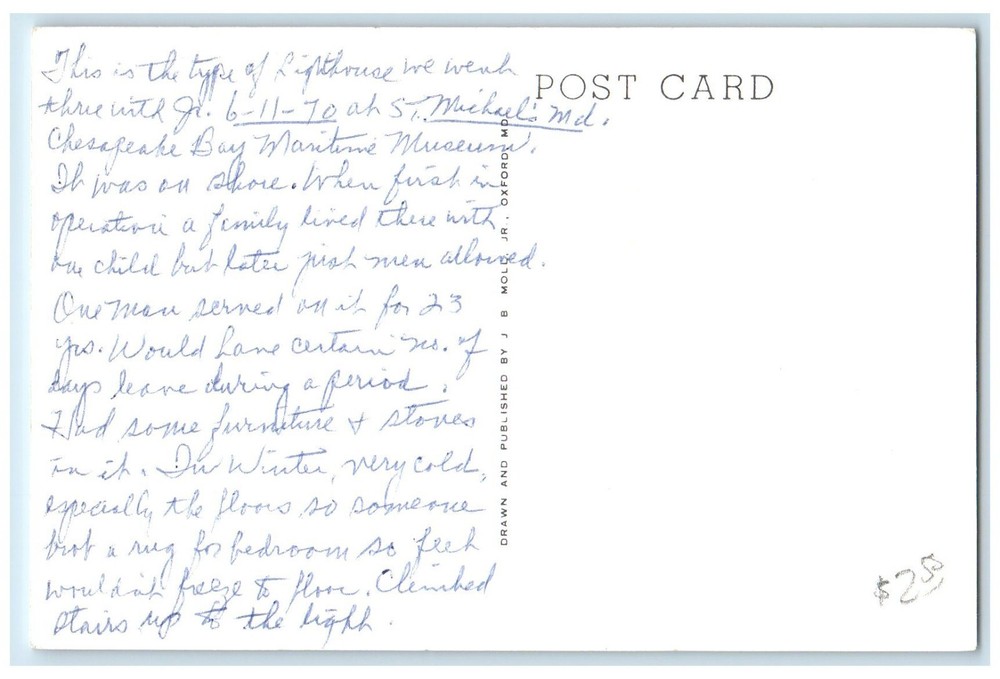 This is the type of Lighthouse we went
thru with Jr. 6-11-70 at St. Michael's Md.
Chesapeake Bay Maritime Museum.
It was on shore. When first in
operation a family lived there with
one child but later just men allowed.
One man served on it for 23
yrs. Would have certain no. of
days leave during a period.
Had some furniture & stoves
in it. In Winter, very cold,
especially the floors so someone
brot a rug for bedroom so feet
wouldn't freeze to floor. Climbed
stairs up to the light.
POST CARD
DRAWN AND PUBLISHED BY J B MOLL JR., OXFORD, MD.
$2.50